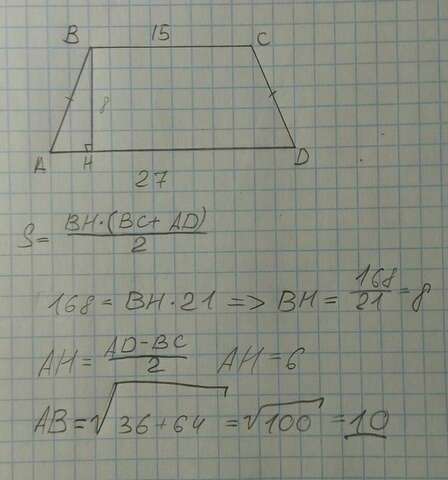 B 15 C
8
A H D
27
S = BH·(BC+AD)/2
168 = BH·21 => BH = 168/21 = 8
AH = AD-BC/2 AH = 6
AB = √36+64 = √100 = 10